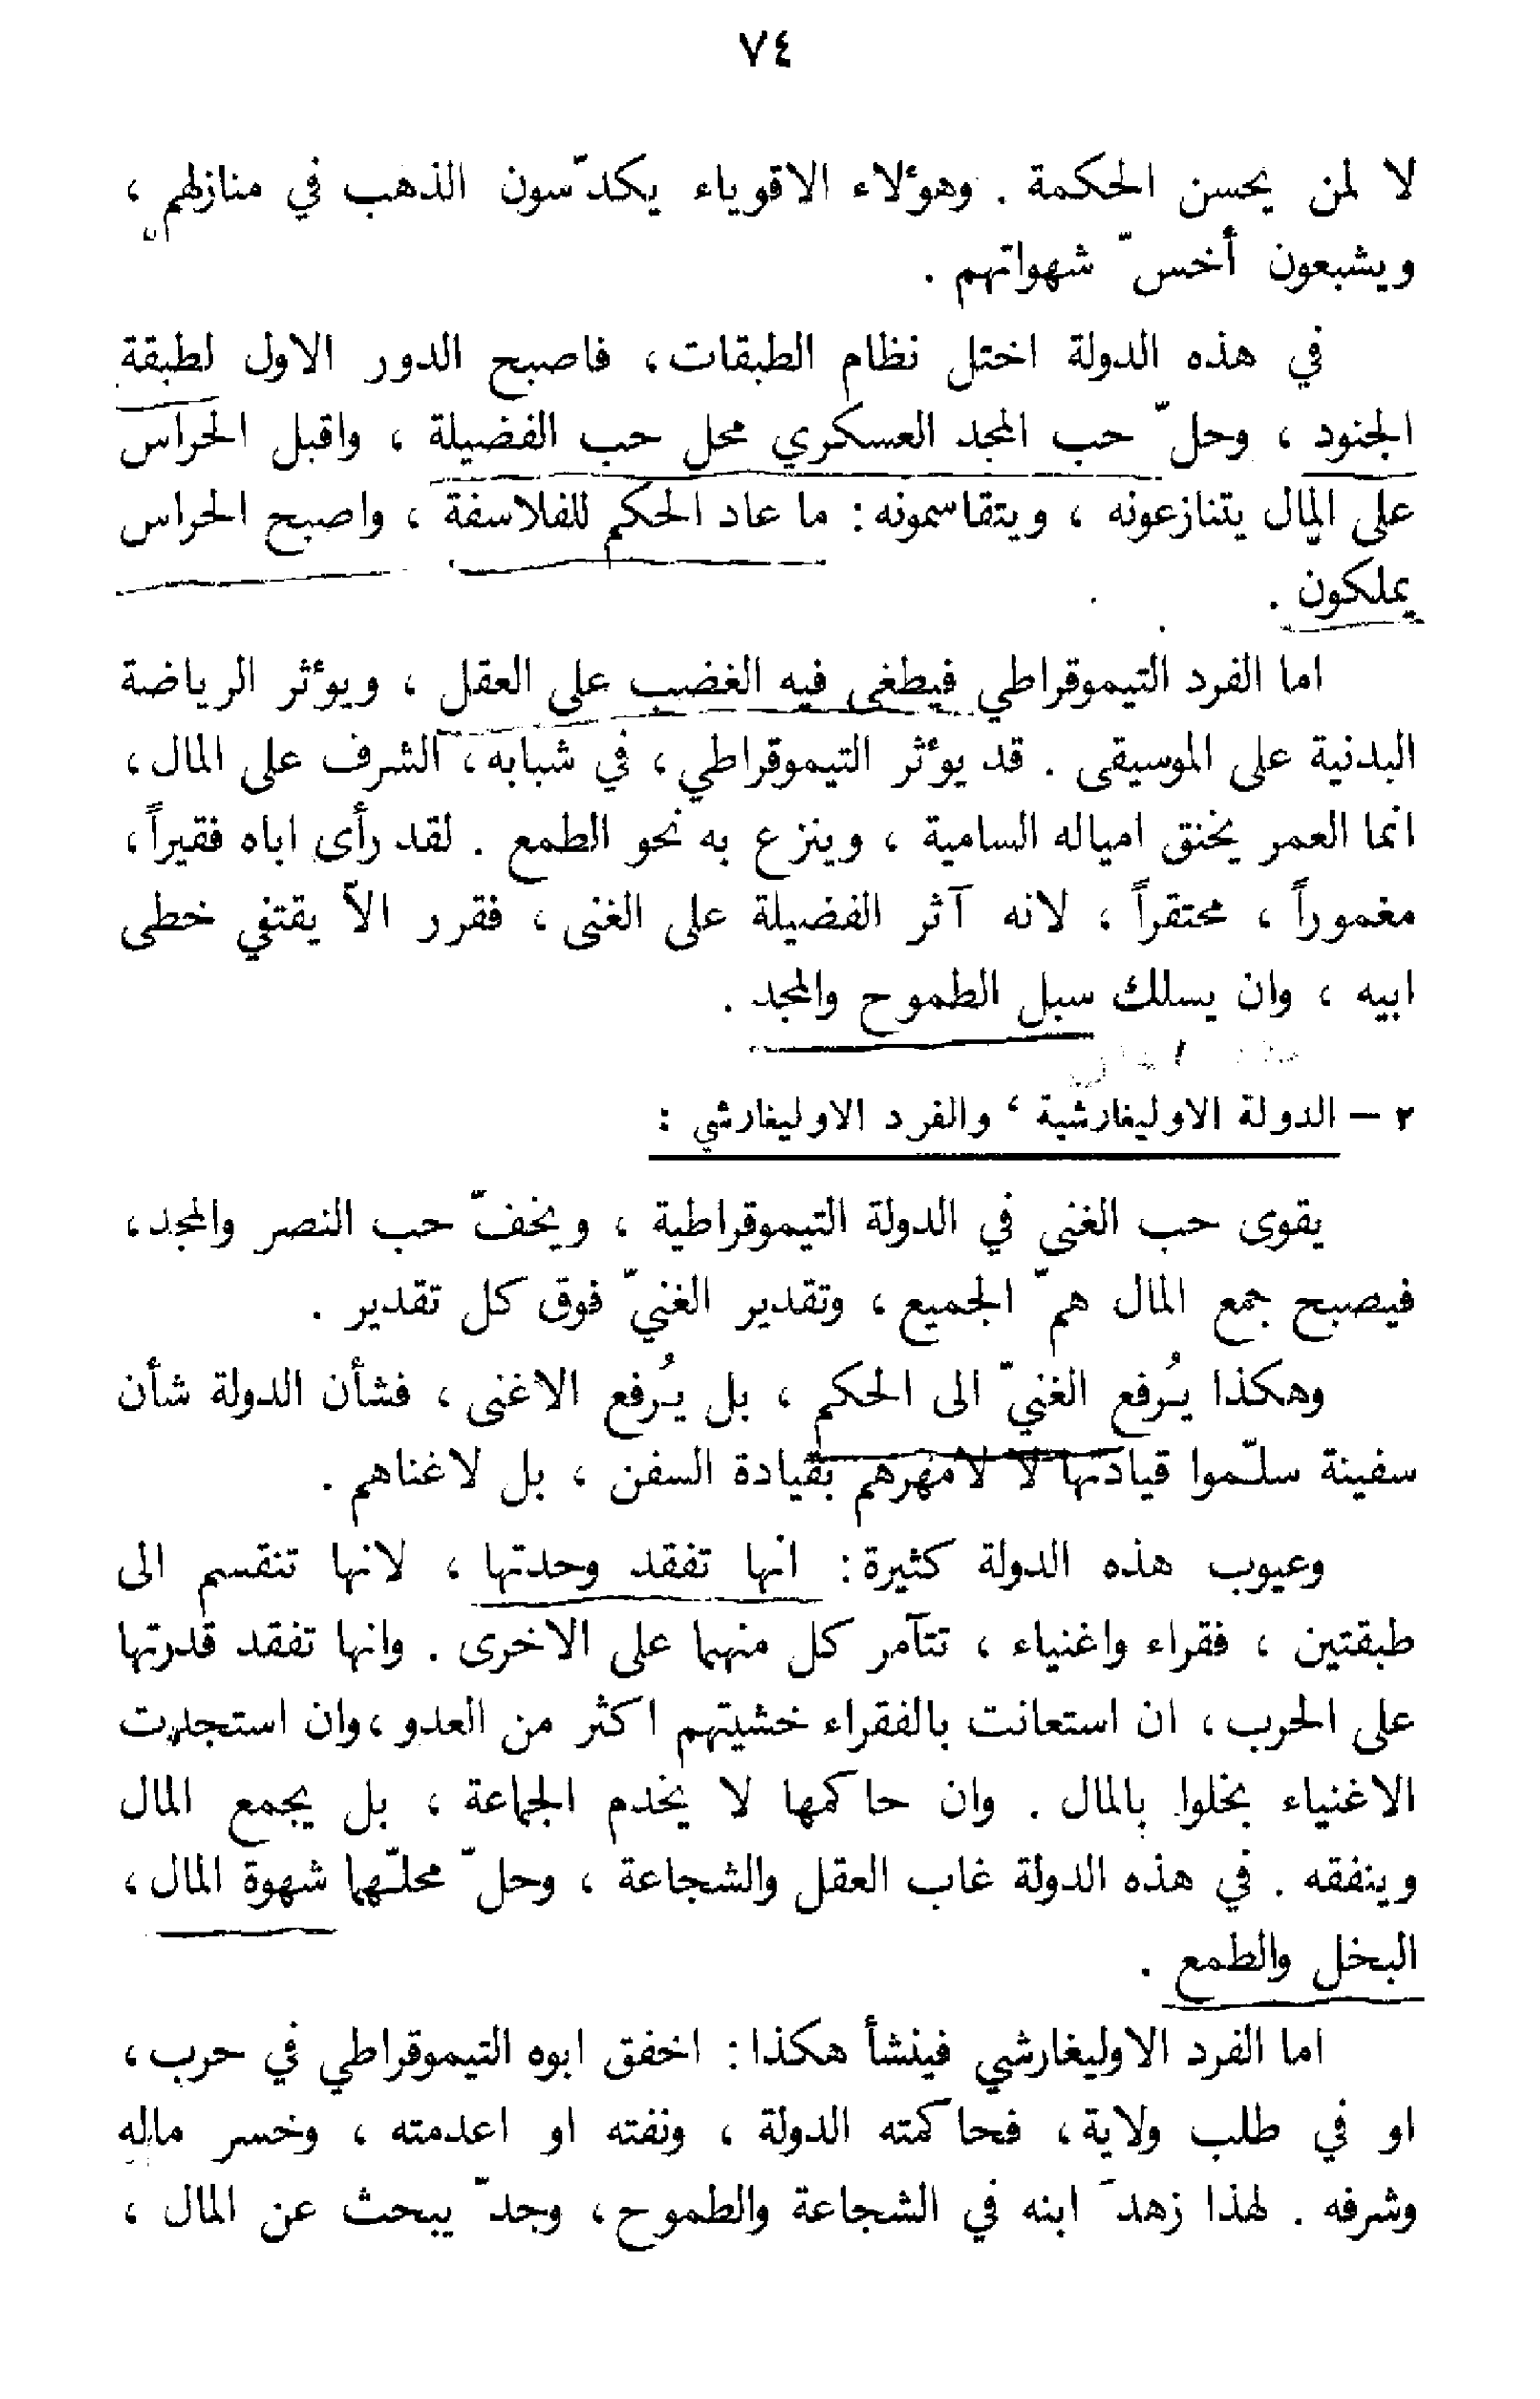 ٧٤
لا لمن يحسن الحكمة . وهؤلاء الاقوياء يكدّسون الذهب في منازلهم ،
ويشبعون أخسّ شهواتهم .
في هذه الدولة اختل نظام الطبقات، فاصبح الدور الاول لطبقة
الجنود ، وحلّ حب المجد العسكري محل حب الفضيلة ، واقبل الحراس
على المال يتنازعونه ، ويتقاسمونه: ما عاد الحكم للفلاسفة ، واصبح الحراس
يملكون .
اما الفرد التيموقراطي فيطغى فيه الغضب على العقل ، ويؤثر الرياضة
البدنية على الموسيقى . قد يؤثر التيموقراطي، في شبابه، الشرف على المال،
انما العمر يخنق امياله السامية ، وينزع به نحو الطمع . لقد رأى اباه فقيراً،
مغموراً ، محتقراً ، لانه آثر الفضيلة على الغنى، فقرر الاّ يقتفي خطى
ابيه ، وان يسلك سبل الطموح والمجد .
٢ – الدولة الاوليغارشية ، والفرد الاوليغارشي :
يقوى حب الغنى في الدولة التيموقراطية ، ويخفّ حب النصر والمجد،
فيصبح جمع المال همّ الجميع، وتقدير الغنيّ فوق كل تقدير .
وهكذا يُرفع الغنيّ الى الحكم ، بل يُرفع الاغنى ، فشأن الدولة شأن
سفينة سلّموا قيادتها لا لامهرهم بقيادة السفن ، بل لاغناهم .
وعيوب هذه الدولة كثيرة: انها تفقد وحدتها ، لانها تنقسم الى
طبقتين ، فقراء واغنياء ، تتآمر كل منهما على الاخرى . وانها تفقد قدرتها
على الحرب، ان استعانت بالفقراء خشيتهم اكثر من العدو ،وان استجدت
الاغنياء بخلوا بالمال . وان حاكمها لا يخدم الجماعة ، بل يجمع المال
وينفقه . في هذه الدولة غاب العقل والشجاعة ، وحلّ محلّهما شهوة المال،
البخل والطمع .
اما الفرد الاوليغارشي فينشأ هكذا: اخفق ابوه التيموقراطي في حرب،
او في طلب ولاية، فحاكمته الدولة ، ونفته او اعدمته ، وخسر ماله
وشرفه . لهذا زهدَ ابنه في الشجاعة والطموح، وجدّ يبحث عن المال ،